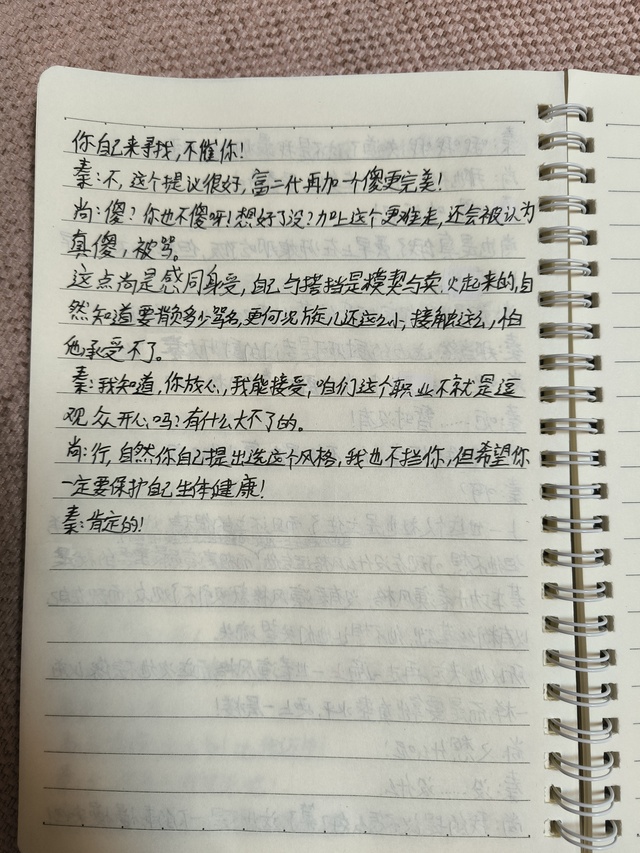 你自己来寻找,不催你!
秦:不,这个提议很好,富二代再加一个傻更完美!
尚:傻?你也不傻呀!想好了没?加上这个更难走,还会被认为
真傻,被骂。
这点尚是感同身受,自己与搭挡是模契与卖火起来的,自
然知道要背负多少骂名,更何况旋儿还这么小,接触这么,怕
他承受不了。
秦:我知道,你放心,我能接受,咱们这个职业不就是逗
观众开心吗?有什么大不了的。
尚:行,自然你自己提出选这个风格,我也不拦你,但希望你
一定要保护自己生体健康!
秦:肯定的!